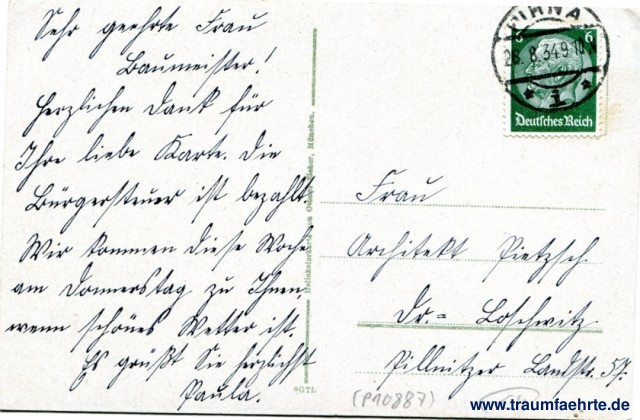 Sehr geehrte Frau
Baumeister!
Herzlichen Dank für
Ihre liebe Karte. Die
Bürgersteuer ist bezahlt.
Wir kommen diese Woche
am Donnerstag zu Ihnen,
wenn schönes Wetter ist.
Es grüßt Sie herzlichst
Paula.
München.
8GTL
PIRNA
26.8.34.9-10
1
6
6
Deutsches Reich
Frau
Architekt Pietzsch.
Dr.= Loschwitz
Pillnitzer Landstr. 57.
(P10887)
www.traumfaehrte.de